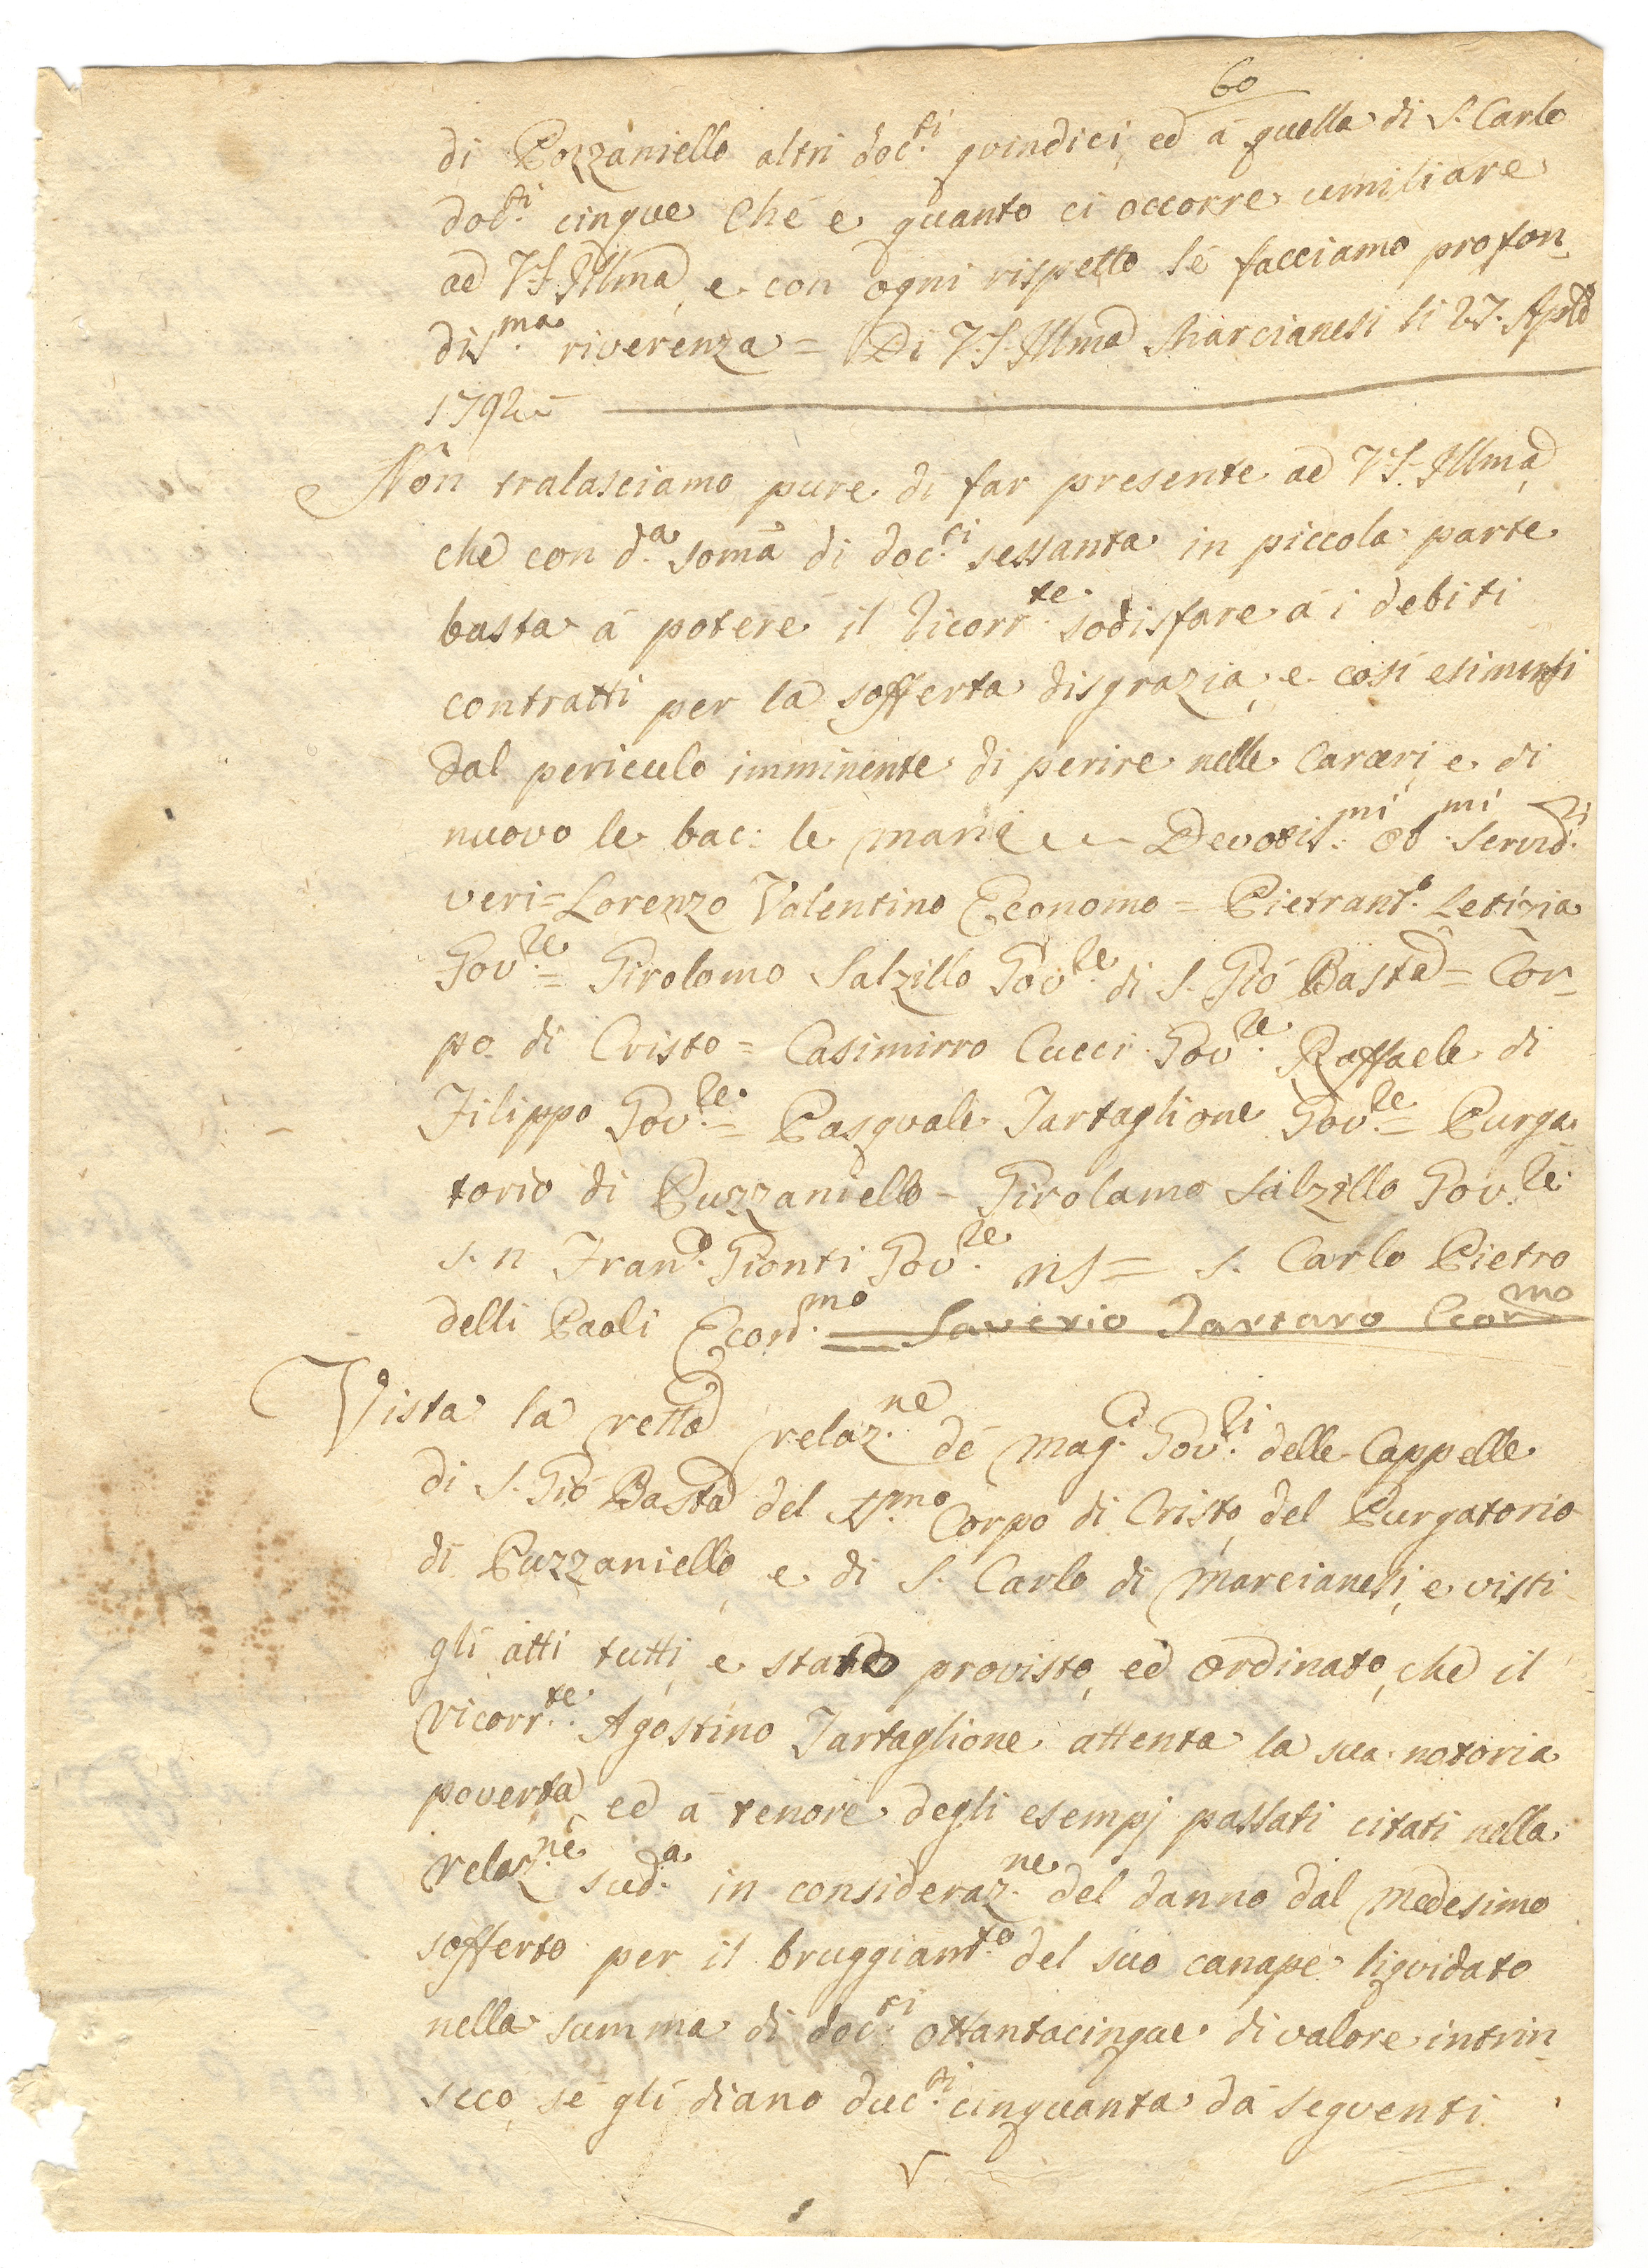 60
di Pozzaniello altri doc.ti quindici, ed á quella di S. Carlo
doc.ti cinque Che é quanto ci occorre umiliare
ad V.S. Illma, e con ogni rispetto le facciamo profon-
dis.ma riverenza = Di V.S. Illma Marcianesi li 27. Aple
1792
Non tralasciamo pure di far presente ad V.S. Illma,
che con d.a soma di doc.ti sessanta in piccola parte
basta á potere il ricorr.te sodisfare á i debiti
contratti per la sofferta disgrazia, e così esimersi
dal periculo imminente di perire nelle Carceri, e di
nuovo le bac: le mani Devotis.mi ob.mi Servid.ri
veri = Lorenzo Valentino Economo = Pietrant.o Letizia
Gov.re = Girolomo Salzillo Gov.re di S. Gió Batta = Cor-
po di Cristo = Casimirro Cucci Gov.re Raffaele di
Filippo Gov.re = Pasquale Tartaglione Gov.re = Purga-
torio di Puzzaniello = Girolamo Salzillo Gov.re
s. n Fran.o Gionti Gov.re ns = S. Carlo Pietro
delli Paoli Econ.mo = Saverio Tartaro Econ.mo
Vista la retta relaz.ne dé Mag.ci Gov.ri delle Cappelle
di S. Gió Batta del SS.mo Corpo di Cristo, del Purgatorio
di Puzzaniello, e di S. Carlo di Marcianesi, e visti
gli atti tutti, e stato provisto, ed ordinato, che il
ricorr.te Agostino Tartaglione attenta la sua notoria
povertà, ed á tenore degli esempj passati citati nella
relaz.ne sud.a in consideraz.ne del danno dal medesimo
sofferto per il bruggiam.to del suo canape liquidato
nella summa di doc.ti ottantacinque di valore intrin-
seco, se gli diano duc.ti cinquanta dá seguenti